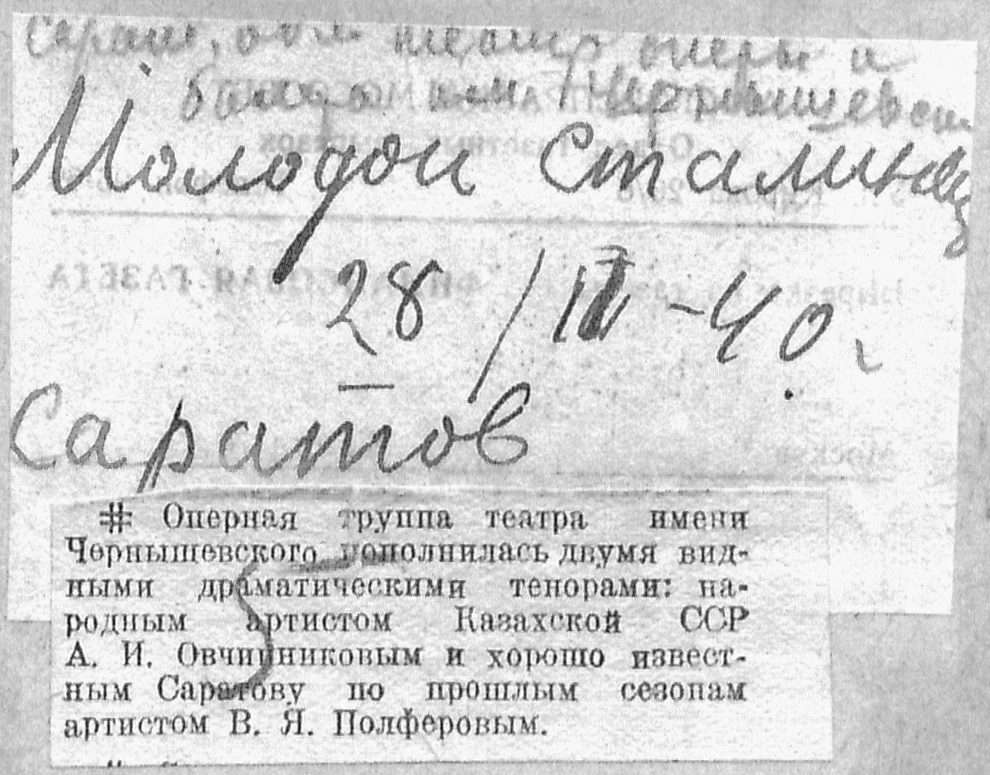 Сарат. обл. театр оперы и
балета им. Чернышевск
Молодой Сталинец
28/III-40.
Саратов
# Оперная труппа театра имени
Чернышевского пополнилась двумя вид-
ными драматическими тенорами: на-
родным артистом Казахской ССР
А. И. Овчинниковым и хорошо извест-
ным Саратову по прошлым сезонам
артистом В. Я. Полферовым.